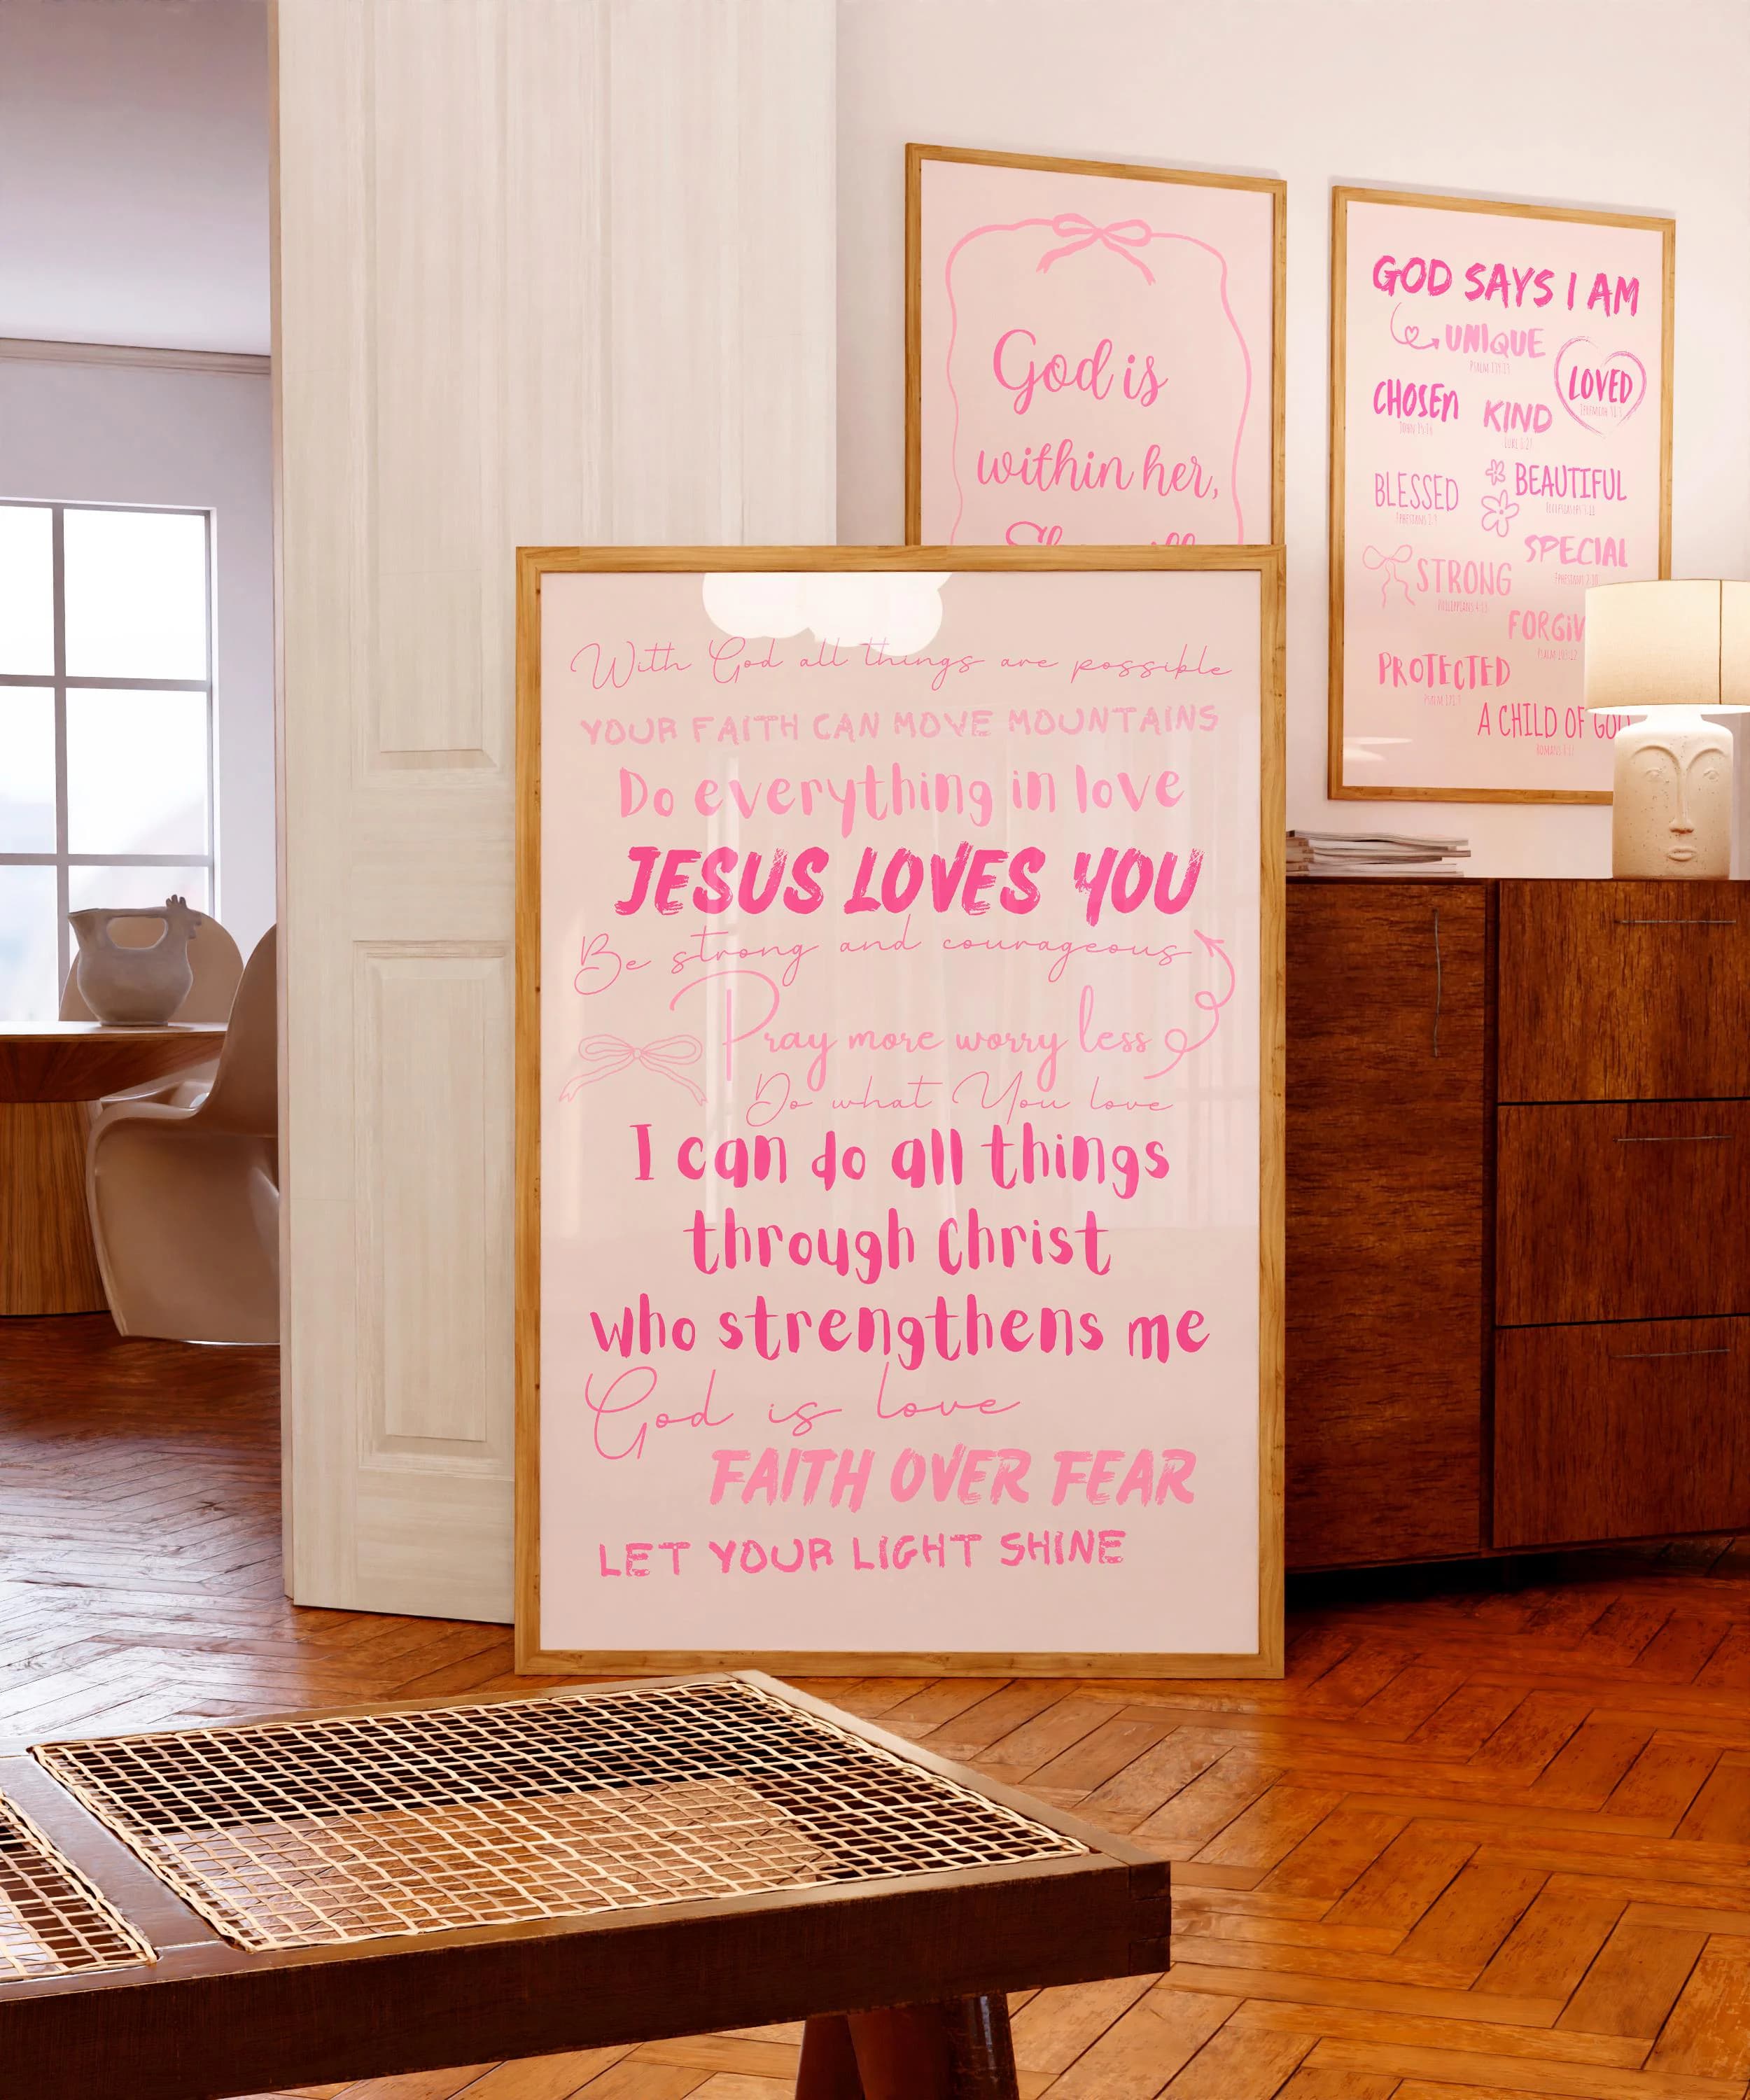 God is
within her,
GOD SAYS I AM
UNIQUE
LOVED
CHOSEN
KIND
BLESSED
BEAUTIFUL
SPECIAL
STRONG
PROTECTED
A CHILD OF
With God all things are possible
YOUR FAITH CAN MOVE MOUNTAINS
Do everything in love
JESUS LOVES YOU
Be strong and courageous
Pray more worry less
Do what You love
I can do all things
through Christ
who strengthens me
God is love
FAITH OVER FEAR
LET YOUR LIGHT SHINE